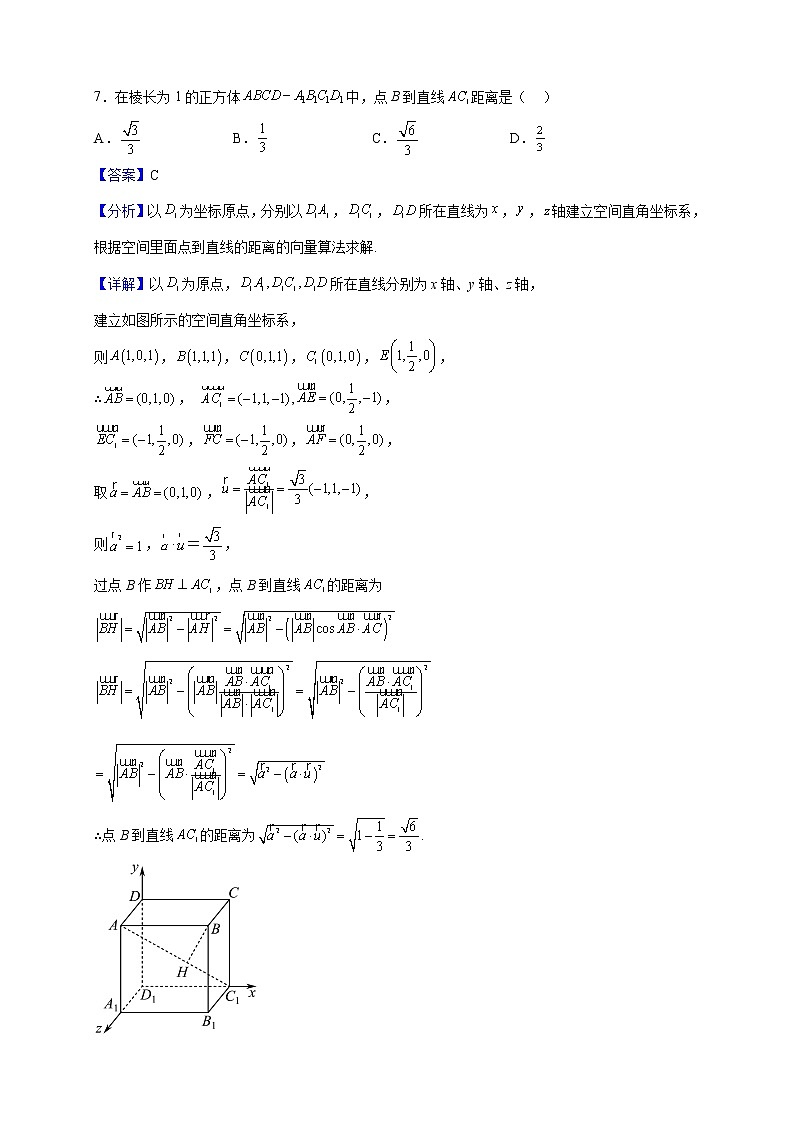 7．在棱长为 1 的正方体 ABCD − A₁B₁C₁D₁ 中，点 B 到直线 AC₁ 距离是（　）
A．√3/3　B．1/3　C．√6/3　D．2/3
【答案】C
【分析】以 D₁ 为坐标原点，分别以 D₁A₁，D₁C₁，D₁D 所在直线为 x，y，z 轴建立空间直角坐标系，
根据空间里面点到直线的距离的向量算法求解.
【详解】以 D₁ 为原点，D₁A₁, D₁C₁, D₁D 所在直线分别为 x 轴、y 轴、z 轴，
建立如图所示的空间直角坐标系，
则 A(1,0,1)，B(1,1,1)，C(0,1,1)，C₁(0,1,0)，E(1,1/2,0)，
∴AB = (0,1,0)，AC₁ = (−1,1,−1), AE = (0,1/2,−1)，
EC₁ = (−1,1/2,0)，FC = (−1,1/2,0)，AF = (0,1/2,0)，
取 a = AB = (0,1,0)，u = AC₁/|AC₁| = √3/3(−1,1,−1)，
则 a² = 1，a·u＝√3/3，
过点 B 作 BH ⊥ AC₁，点 B 到直线 AC₁ 的距离为
|BH| = √(|AB|² − |AH|²) = √(|AB|² − (|AB|cos AB·AC)²)
|BH| = √(|AB|² − (|AB| AB·AC₁/(|AB|·|AC₁|))²) = √(|AB|² − (AB·AC₁/|AC₁|)²)
= √(|AB|² − (AB·AC₁/|AC₁|)²) = √(a² − (a·u)²)
∴点 B 到直线 AC₁ 的距离为 √(a² − (a·u)²) = √(1 − 1/3) = √6/3.
y
D
C
A
B
H
D₁
C₁
x
A₁
B₁
z